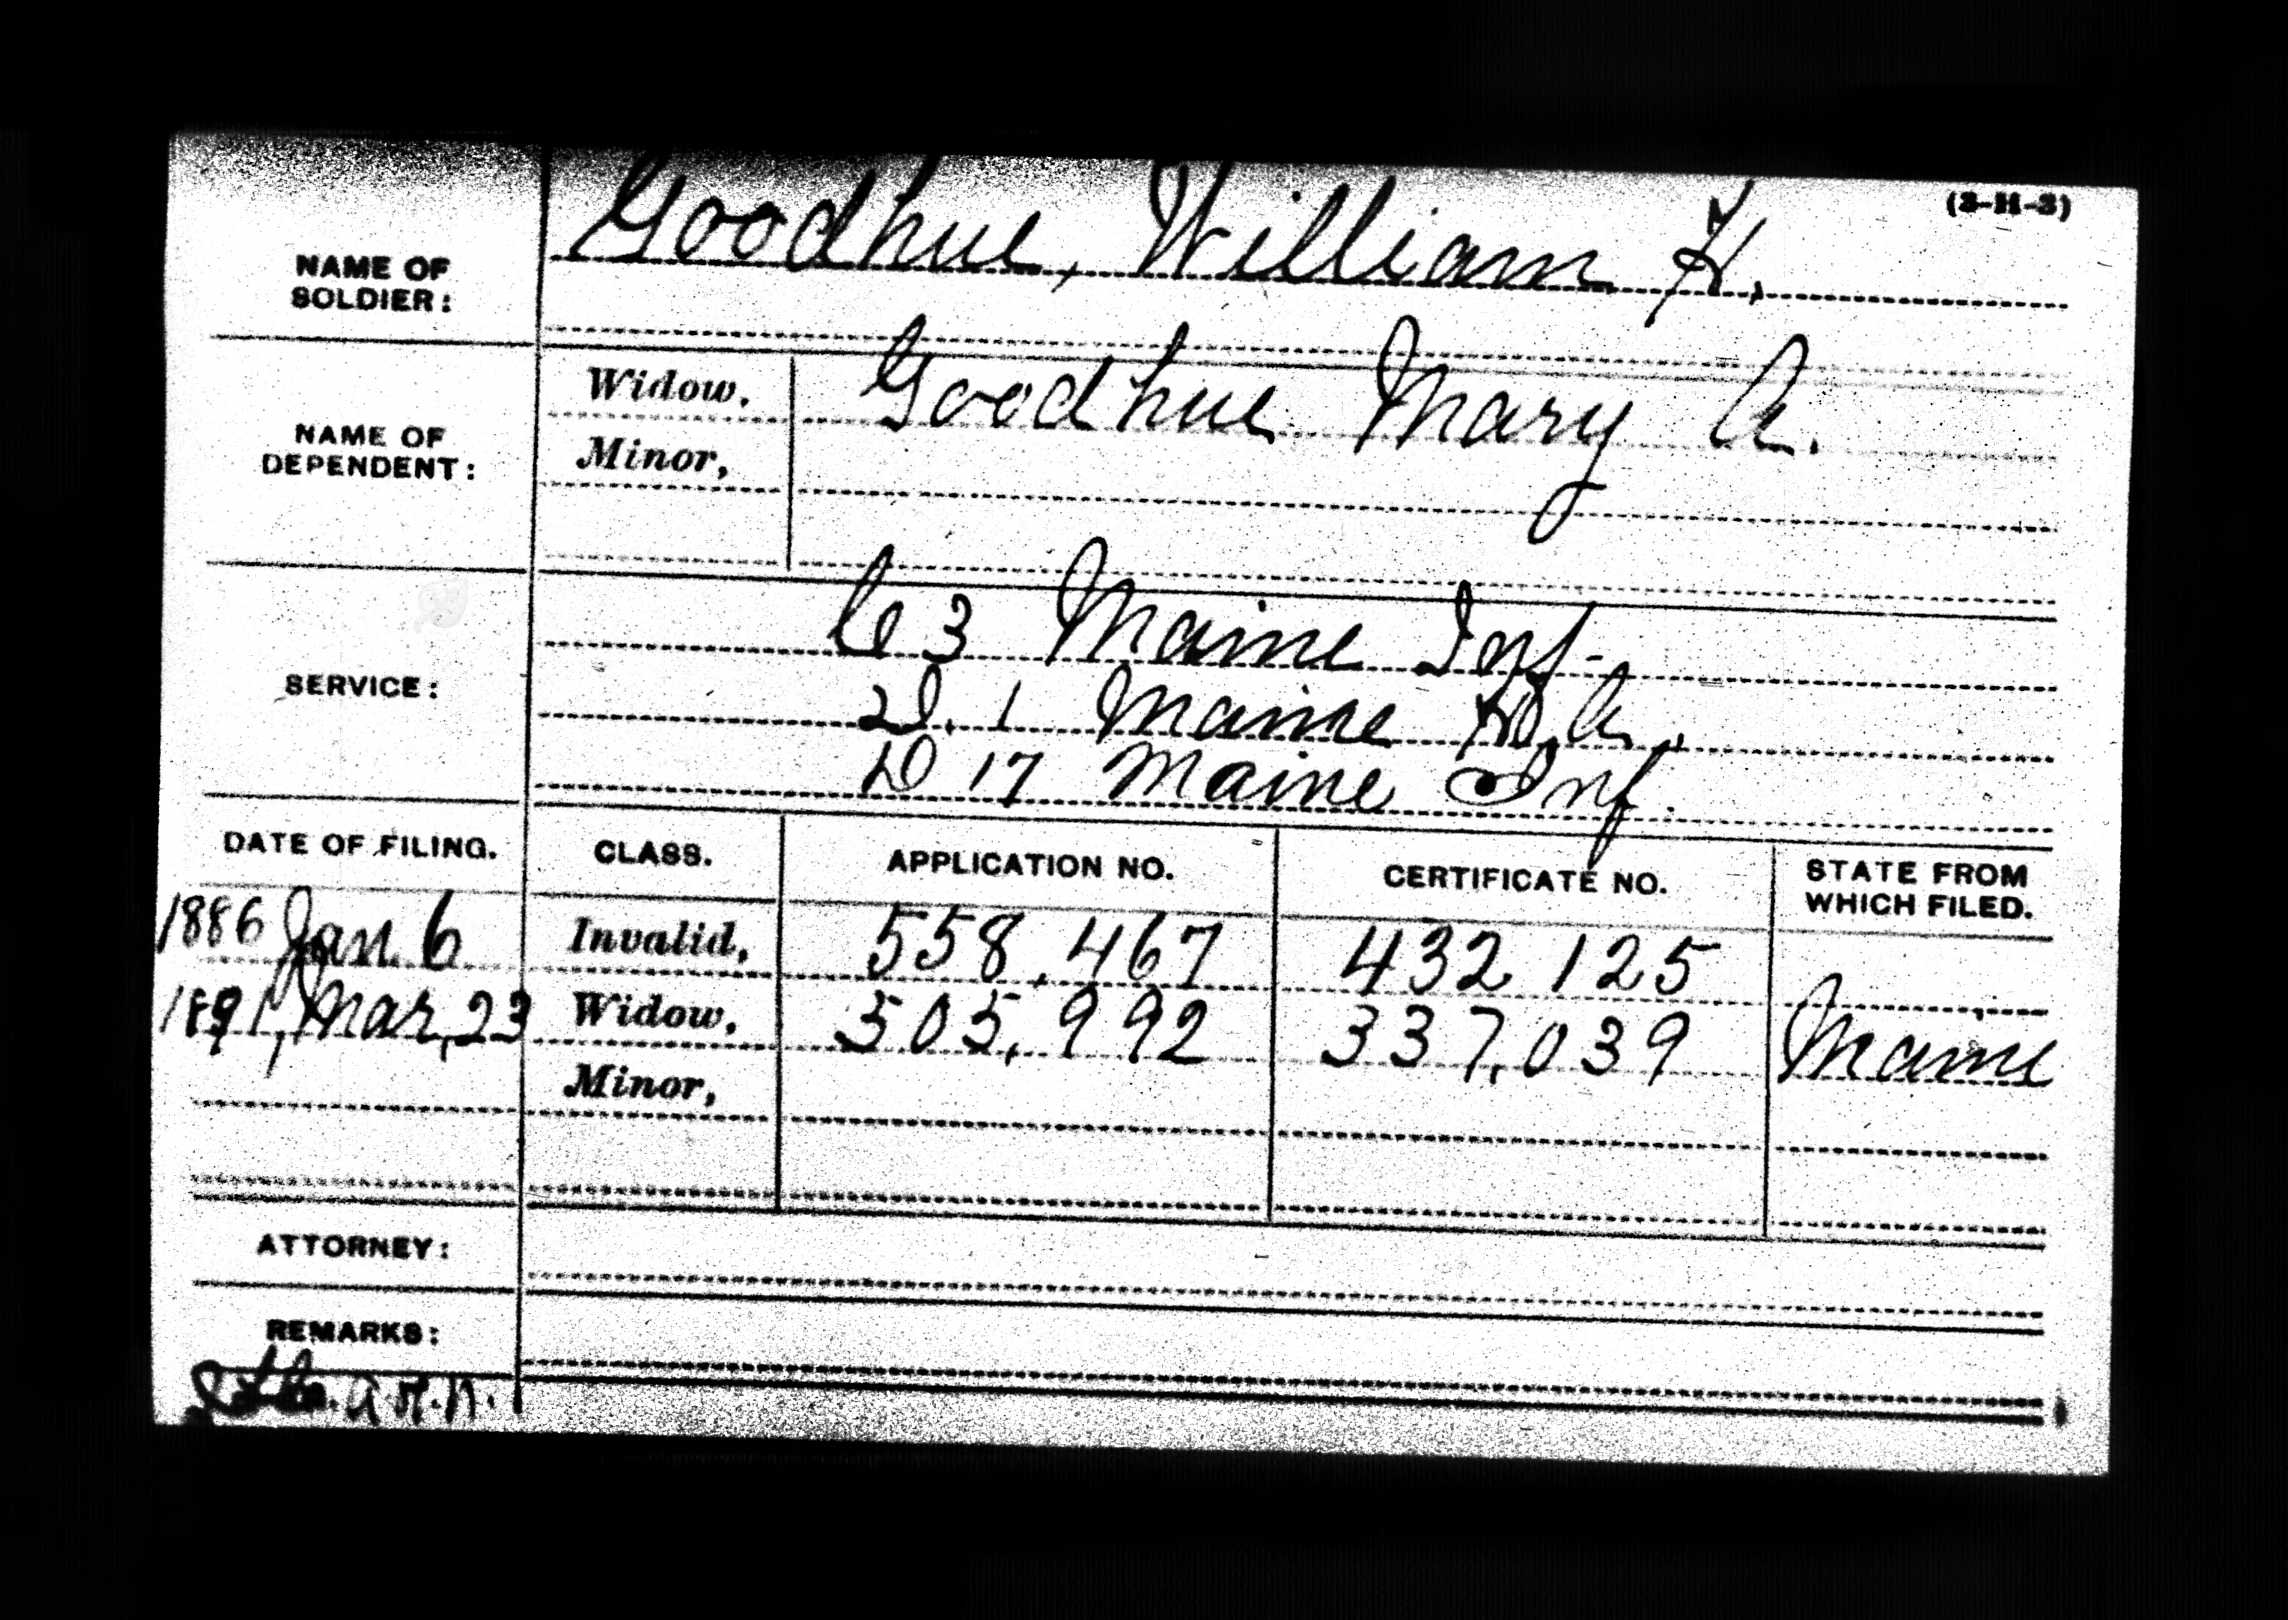 (3-H-3)
NAME OF SOLDIER: Goodhue, William H.
NAME OF DEPENDENT:
Widow, Goodhue Mary A.
Minor,
SERVICE:
3 Maine Inf.
D. 1 Maine H.A.
D 17 Maine Inf.
DATE OF FILING. CLASS. APPLICATION NO. CERTIFICATE NO. STATE FROM WHICH FILED.
1886 Jan. 6 Invalid, 558,467 432 125
1891, Mar, 23 Widow, 505,992 337,039 Maine
Minor,
ATTORNEY:
REMARKS: